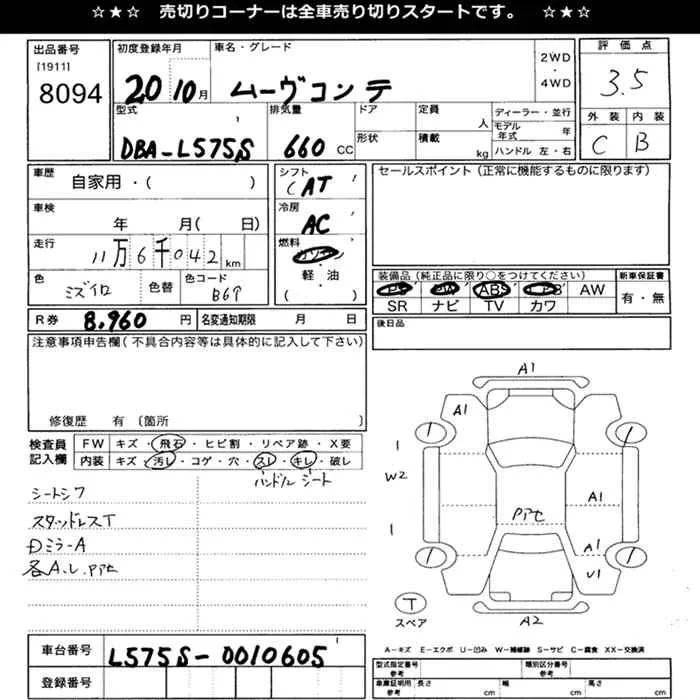 ☆★☆ 売切りコーナーは全車売り切りスタートです。 ☆★☆
出品番号
[1911]
8094
初度登録年月
20 10月
車名・グレード
ムーヴコンテ
2WD
・
4WD
評価点
3.5
外装 内装
C B
型式
DBA-L575S
排気量
660 CC
ドア
形状
定員
人
積載
kg
ディーラー・並行
モデル年式 年
ハンドル 左・右
車歴
自家用・( )
車検
年 月( 日)
走行
11万6千042 km
色
ミズイロ
色替
色カラーコード
B61
シフト
AT
冷房
AC
燃料
ガソリン
・
軽・油
( )
セールスポイント(正常に機能するものに限ります)
装備品(純正品に限り○をつけてください)
PS PW ABS AB AW
SR ナビ TV カワ
新車保証書
有・無
R券 8,960 円 名変通知期限 月 日
後日品
注意事項申告欄(不具合内容等は具体的に記入して下さい)
修復歴 有〔箇所 〕
検査員記入欄
FW キズ・飛石・ヒビ割・リペア跡・X要
内装 キズ・汚レ・コゲ・穴・スレ・キレ・破レ
ハンドル シート
シートシワ
スタッドレスT
Dミラ-A
各A.U.PPt
A1
A1
1
1
1
W2
1
A1
PPt
A1
U1
1
1
T
スペア
A2
A-キズ E-エクボ U-凹み W-補修跡 S-サビ C-腐食 XX-交換済
車台番号 L575S-0010605
登録番号
型式指定番号 参考
類別区分番号 参考
車庫証明用 参考
長さ cm 幅 cm 高さ cm